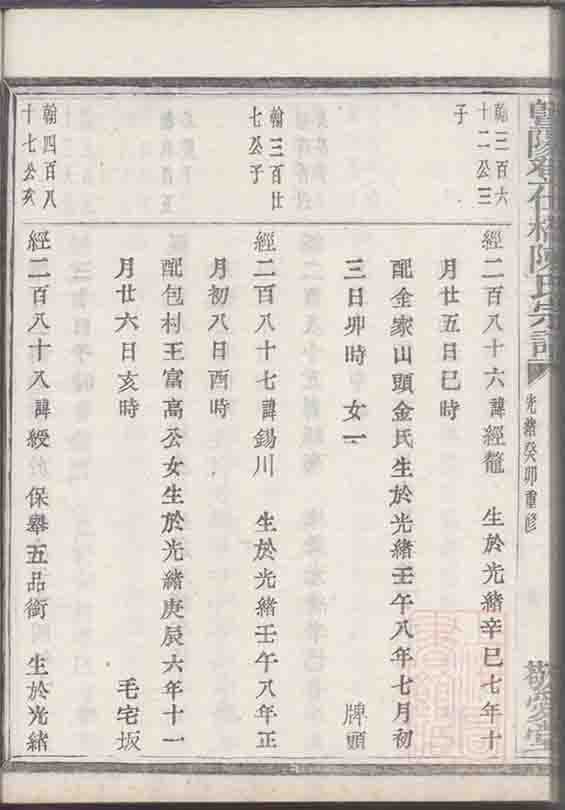 暨陽橋陳氏宗譜
光緒癸卯重修
敬愛堂
翰三百六
十二公三
子
經二百八十六諱經龍 生於光緒辛巳七年十
月廿五日巳時
配金家山頭金氏生於光緒壬午八年七月初
三日卯時 女一 牌頭
翰三百廿
七公子
經二百八十七諱錫川 生於光緒壬午八年正
月初八日酉時
配包村王富高公女生於光緒庚辰六年十一
月廿六日亥時 毛宅坂
翰四百八
十七公亥
經二百八十八諱綬 保舉五品銜 生於光緒